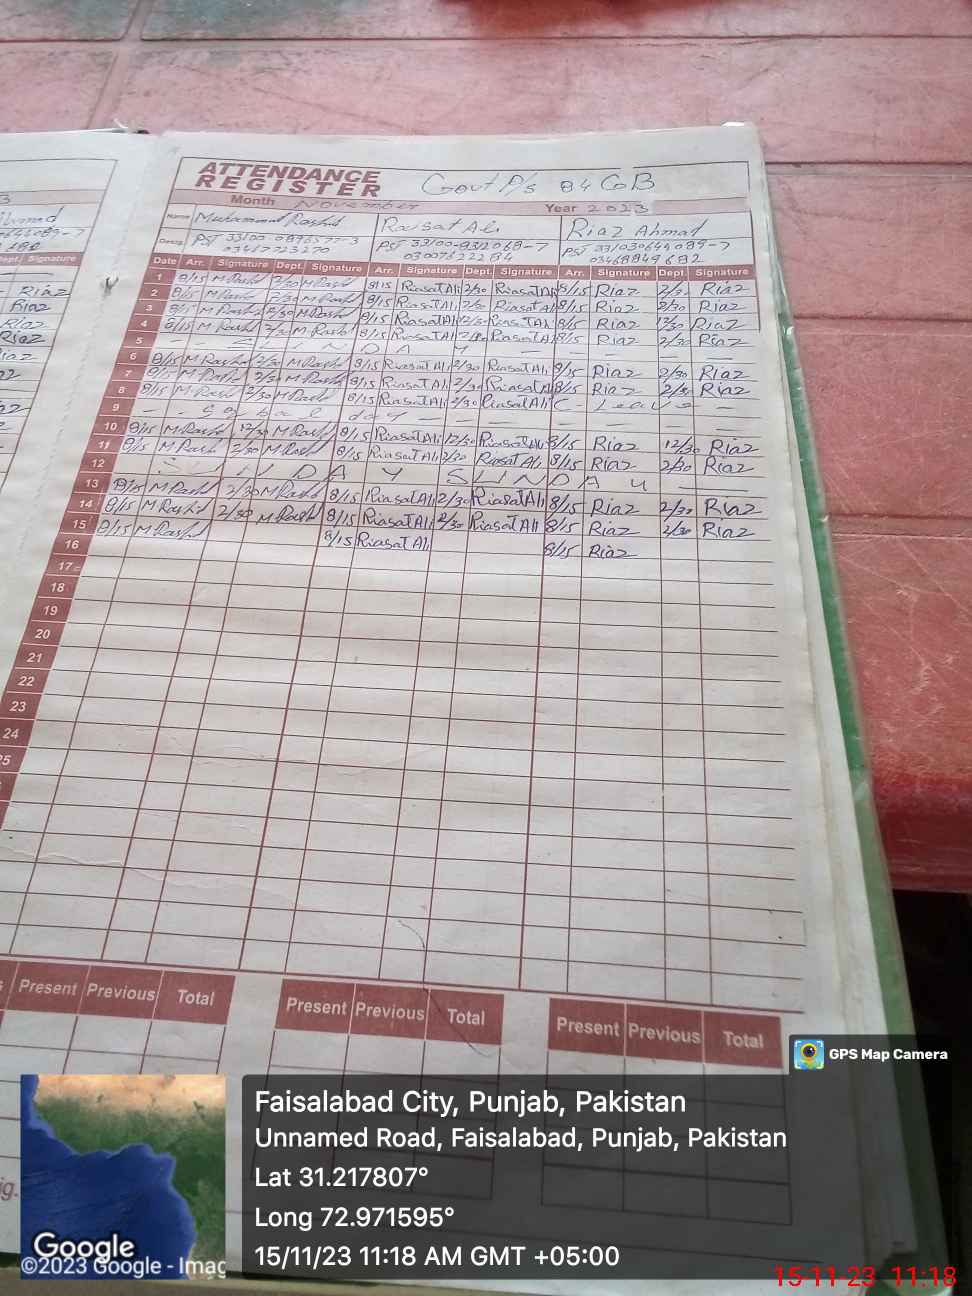 ATTENDANCE
REGISTER
Govt P/s 84 GB
Month November Year 2023
Name Muhammad Rashid Riasat Ali Riaz Ahmad
Desig. PST PST 33100-9312068-7 PST
03007622284 03468849682
Date Arr. Signature Dept. Signature Arr. Signature Dept. Signature Arr. Signature Dept. Signature
1 8/15 M Rashid 2/30 M Rashid 8/15 Riasat Ali 2/30 Riasat Ali 8/15 Riaz 2/30 Riaz
2 8/15 M Rashid 2/30 M Rashid 8/15 Riasat Ali 2/30 Riasat Ali 8/15 Riaz 2/30 Riaz
3 8/15 M Rashid M Rashid 8/15 Riasat Ali 12/30 Riasat Ali 8/15 Riaz 12/30 Riaz
4 8/15 M Rashid 2/30 M Rashid 8/15 Riasat Ali 2/30 Riasat Ali 8/15 Riaz 2/30 Riaz
5 - - SUNDAY - - - - -
6 8/15 M Rashid 2/30 M Rashid 8/15 Riasat Ali 2/30 Riasat Ali 8/15 Riaz 2/30 Riaz
7 8/15 M Rashid 2/30 M Rashid 8/15 Riasat Ali 2/30 Riasat Ali 8/15 Riaz 2/30 Riaz
8 8/15 M Rashid 2/30 M Rashid 8/15 Riasat Ali 2/30 Riasat Ali C - Leave -
9 - - Iqbal day - - - - - -
10 8/15 M Rashid 12/30 M Rashid 8/15 Riasat Ali 12/30 Riasat Ali 8/15 Riaz 12/30 Riaz
11 8/15 M Rashid 2/30 M Rashid 8/15 Riasat Ali 2/30 Riasat Ali 8/15 Riaz 2/30 Riaz
12 - SUNDAY SUNDAY - -
13 8/15 M Rashid 2/30 M Rashid 8/15 Riasat Ali 2/30 Riasat Ali 8/15 Riaz 2/30 Riaz
14 8/15 M Rashid 2/30 M Rashid 8/15 Riasat Ali 2/30 Riasat Ali 8/15 Riaz 2/30 Riaz
15 8/15 M Rashid 8/15 Riasat Ali 8/15 Riaz
16
17
18
19
20
21
22
23
24
25
Present Previous Total Present Previous Total Present Previous Total
Dept. Signature
Riaz
Riaz
Riaz
Riaz
GPS Map Camera
Faisalabad City, Punjab, Pakistan
Unnamed Road, Faisalabad, Punjab, Pakistan
Lat 31.217807°
Long 72.971595°
15/11/23 11:18 AM GMT +05:00
Google
©2023 Google - Imag
15-11-23 11:18